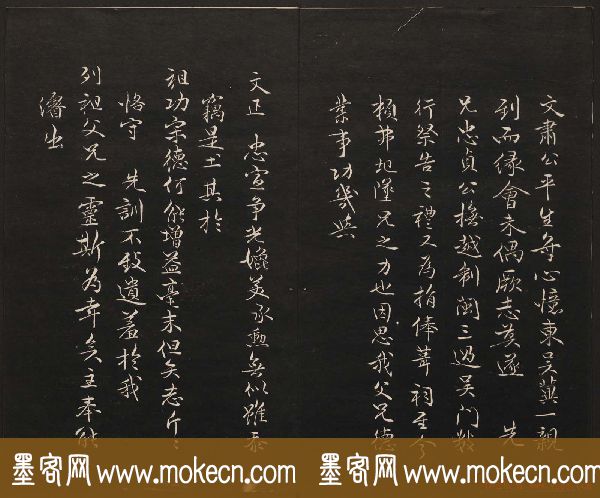 文肅公平生每心憶東吳英一親
到而緣會未偶厥志莫遂 先
兄忠貞公撫越制閩三過吳門戰
行祭告之禮又為捐俸葺祠至今
頼弗地墜兄之力也因思我父兄德
業事功幾與
文正 忠宣爭光媲美承勳無似雖忝
竊是土其於
祖功宗德何能增益毫末但矢志斤斤
恪守 先訓不致遺羞於我
列祖父兄之靈斯為幸矣主奉能
濬出
墨客网 www.mokecn.com 墨客网 www.mokecn.com